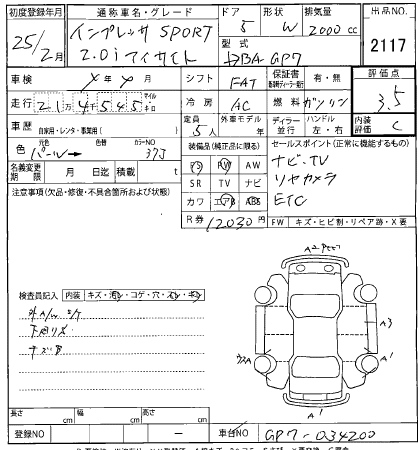 初度登録年月 通称車名・グレード ドア 形状 排気量 出品NO.
25/2月 インプレッサ SPORT 2.0i アイサイト 5 W 2000cc 2117
型式 DBA-GP7
車検 年 月 シフト FAT 保証書 有・無 評価点 3.5
走行 21万4545 マイル キロ 冷房 AC 燃料 ガソリン
車歴 自家用・レンタ・事業用( ) 定員 5人 外車モデル 年 ディーラー 並行 ハンドル 左・右 内装評価 C
色 元色 パール→ 色替 カラーNO 37J
装備品(純正品に限る) セールスポイント(正常に機能するもの)
PS PW AW ナビ・TV
名義変更期限 月 日迄 積載 t SR TV ナビ リヤカメラ
注意事項(欠品・修復・不具合箇所および状態) カワ エアB ABS ETC
R券 12030円 FW キズ・ヒビ割・リペア跡・X要
検査員記入 内装 キズ・汚レ・コゲ・穴・スレ・
外A/W
下廻りサビ
A
A3
A'
A'
長さ cm 幅 cm 高さ cm
登録NO － 車台NO GP7-034200